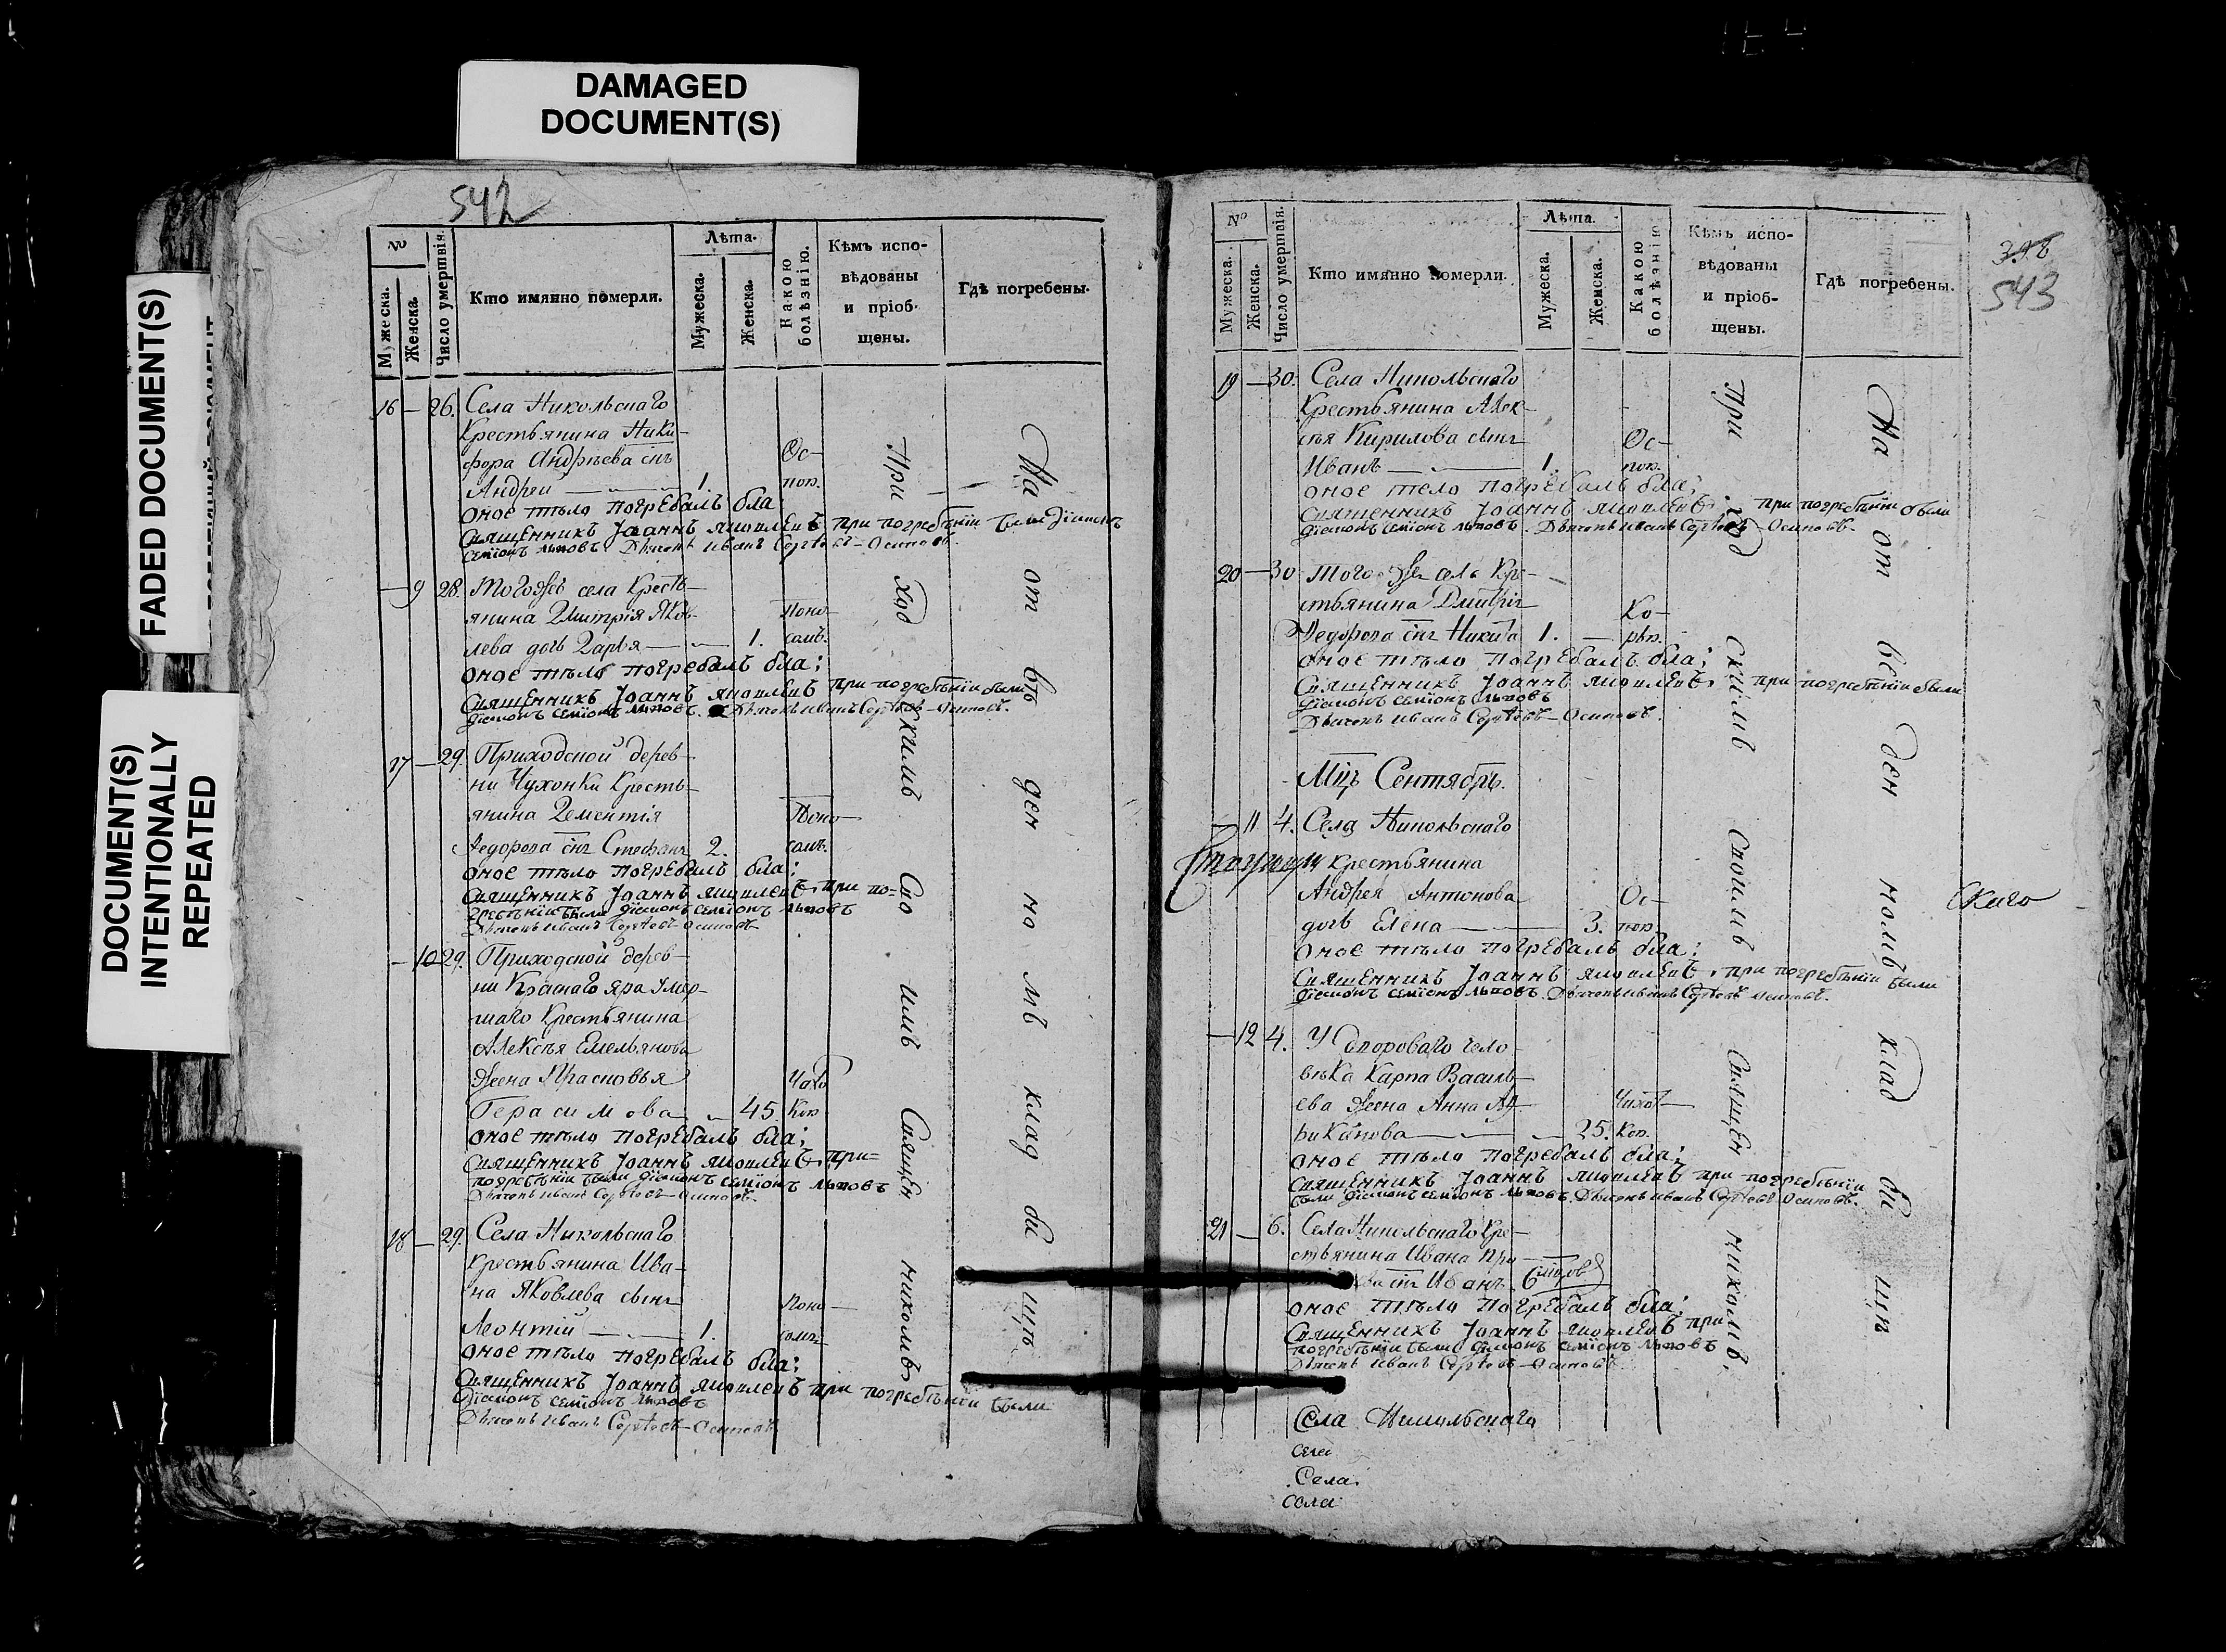 DAMAGED
DOCUMENT(S)
FADED DOCUMENT(S)
DOCUMENT(S)
INTENTIONALLY
REPEATED
542
№
Мужеска.
Женска.
Число умертвія.
Кто имянно померли.
Лѣта.
Мужеска.
Женска.
Какою болѣзнію.
Кѣмъ испо-
вѣдованы
и пріоб-
щены.
Гдѣ погребены.
16 — 26. Села Никольскаго
Крестьянина Ники-
фора Андрѣева снъ Ос-
Андреи — 1. поп.
оное тѣло погребалъ бла:
Священникъ Іоаннъ при погребѣніи были діаконъ
Семіонъ Львовъ. Дьячокъ Иванъ Сергѣевъ Осиповъ.
— 9 28. Тогожъ села Кресть-
янина Дмитрія Яков- Поно-
лева дочь Дарья — 1. сомъ.
оное тѣло погребалъ бла:
Священникъ Іоаннъ при погребѣніи были
діаконъ Семіонъ Львовъ. Дьячокъ Иванъ Сергѣевъ Осиповъ.
17 — 29. Приходской дерев-
ни Чухонки Кресть-
янина Дементія Поно-
Ѳедорова снъ Стефанъ 2. сомъ.
оное тѣло погребалъ бла:
Священникъ Іоаннъ при по=
гребѣніи были діаконъ Семіонъ Львовъ
Дьячокъ Иванъ Сергѣевъ Осиповъ
— 10 29. Приходской дерев-
ни Краснаго яра умер-
шаго Крестьянина
Алексѣя Емельянова
жена Прасковья Чахо
Герасимова — 45 Кои.
оное тѣло погребалъ бла:
Священникъ Іоаннъ при=
погребѣніи были діаконъ Семіонъ Львовъ
Дьячокъ Иванъ Сергѣевъ Осиповъ.
18 — 29. Села Никольскаго
Крестьянина Ива-
на Яковлева сынъ Поно-
Леонтій — 1. сомъ
оное тѣло погребалъ бла:
Священникъ Іоаннъ при погребѣніи были
діаконъ Семіонъ Львовъ
Дьячокъ Иванъ Сергѣевъ Осиповъ
При ход скимъ Священ никомъ
На от вѣ ден но мъ клад би щѣ
543
№
Мужеска.
Женска.
Число умертвія.
Кто имянно померли.
Лѣта.
Мужеска.
Женска.
Какою болѣзнію
Кѣмъ испо-
вѣдованы
и пріоб-
щены.
Гдѣ погребены.
19 — 30. Села Никольскаго
Крестьянина Алек-
сѣя Кирилова сынъ Ос-
Иванъ — 1. поп.
оное тело погребалъ бла:
Священникъ Іоаннъ при погребѣніи были
діаконъ Семіонъ Львовъ. Дьячокъ Иванъ Сергѣевъ Осиповъ.
20 — 30 Того же села Кре-
стьянина Дмитрія Ко-
Ѳедорова снъ Никита 1. — рью.
оное тѣло погребалъ бла:
Священникъ Іоаннъ при погребѣніи были
діаконъ Семіонъ Львовъ
Дьячокъ Иванъ Сергѣевъ Осиповъ.
Мцъ Сентябрь.
— 11 4. Села Никольскаго
крестьянина
Андрея Антонова Ос-
дочь Елена — 3. поп.
оное тѣло погребалъ бла:
Священникъ Іоаннъ при погребѣніи были
діаконъ Семіонъ Львовъ. Дьячокъ Иванъ Сергѣевъ Осиповъ.
— 12 4. У двороваго чело-
вѣка Карпа Василь-
ева жена Анна Ан- Чахот-
рикanова — 25. Кои.
оное тѣло погребалъ бла:
Священникъ Іоаннъ при погребѣніи
были діаконъ Семіонъ Львовъ. Дьячокъ Иванъ Сергѣевъ Осиповъ.
21 — 6. Села Никольскаго Кре-
стьянина Ивана Про-
снъ Иванъ
оное тѣло погребалъ бла:
Священникъ Іоаннъ при
погребѣніи были діаконъ Семіонъ Львовъ
Дьячокъ Иванъ Сергѣевъ Осиповъ
При ход скимъ Священ никомъ.
На от ве ден номъ клад би щѣ
скаго
Села Никольскаго
села
Села
села